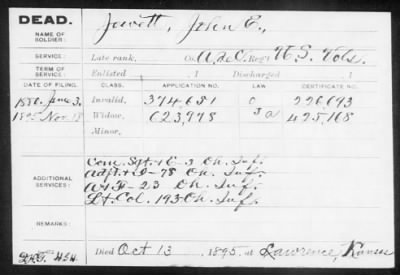 DEAD.
NAME OF SOLDIER: Jewett, John E.,
SERVICE: Late rank, Co. A.D.C. Reg't U.S. Vols.
TERM OF SERVICE: Enlisted , 1 Discharged , 1
DATE OF FILING. CLASS. APPLICATION NO. LAW CERTIFICATE NO.
1880. June 3. Invalid. 374681 226693
1895 Nov. 18 Widow, 623,998 3 a 425,168
Minor,
ADDITIONAL SERVICES:
Com. Sgt. + C - 3 Oh. Inf.
Adjt. + D - 75 Oh. Inf.
A + F - 23 Oh. Inf.
Lt. Col. 193 Oh. Inf.
REMARKS:
Died Oct 13, 1895, at Lawrence, Kansas